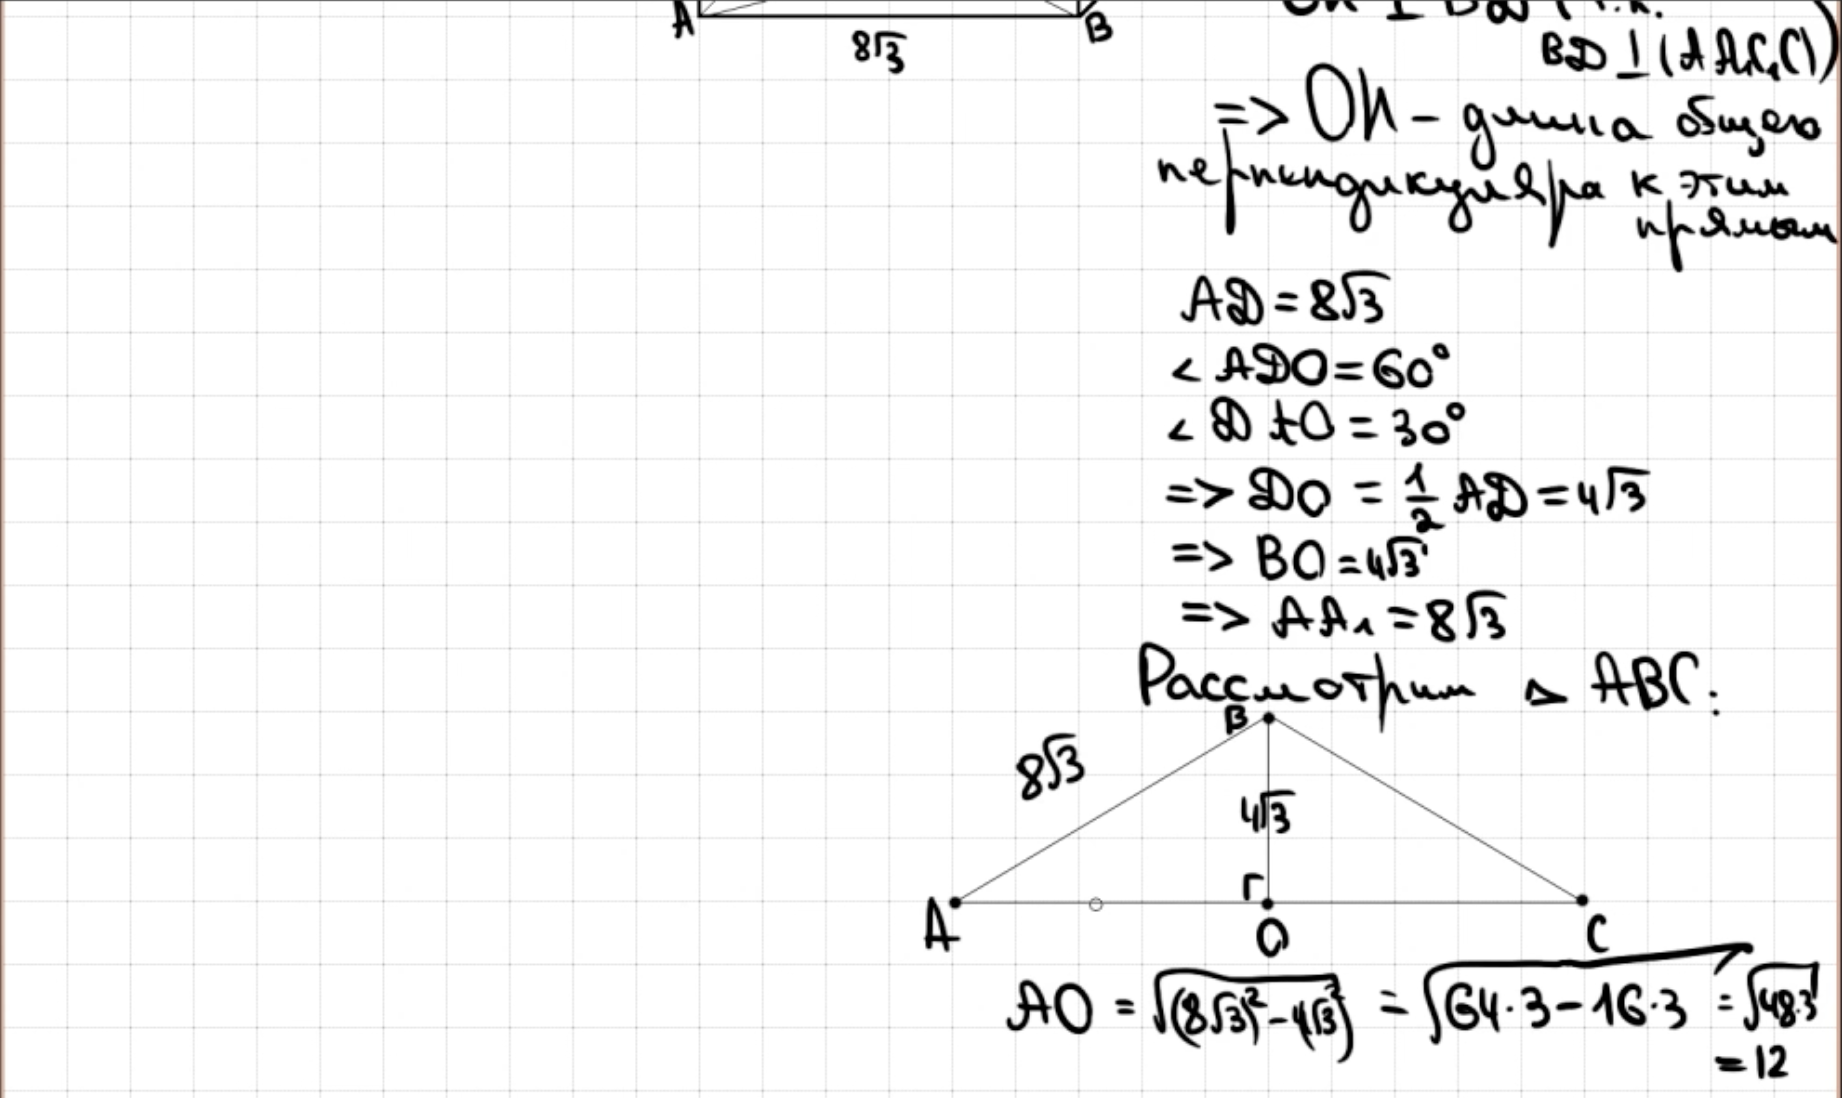 A
B
8√3
BD ⊥ (AA₁C₁C)
=> OK - длина общего
перпендикуляра к этим
прямым
AD = 8√3
< ADO = 60°
< DAO = 30°
=> DO = 1/2 AD = 4√3
=> BO = 4√3
=> AA₁ = 8√3
Рассмотрим △ ABC:
B
8√3
4√3
A
O
C
AO = √((8√3)² - (4√3)²) = √(64·3 - 16·3) = √(48·3)
= 12